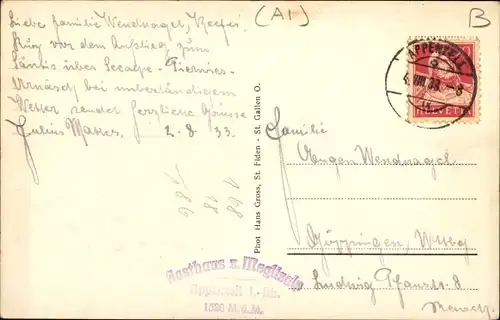 (A1)
B
Liebe Familie Wendnagel,
Kurz vor dem Aufstieg zum
Säntis über
bei unbeständigem
Wetter sendet herzliche Grüsse
Julius 2.8.33.
168
28
Phot Hans Gross, St. Fiden - St. Gallen O.
APPENZELL
HELVETIA
Familie
Eugen Wendnagel
Göppingen, Wttbg
Ludwig Pfanzstr. 8
Gasthaus z. Meglisalp
Appenzell I.-Rh.
1520 M.ü.M.